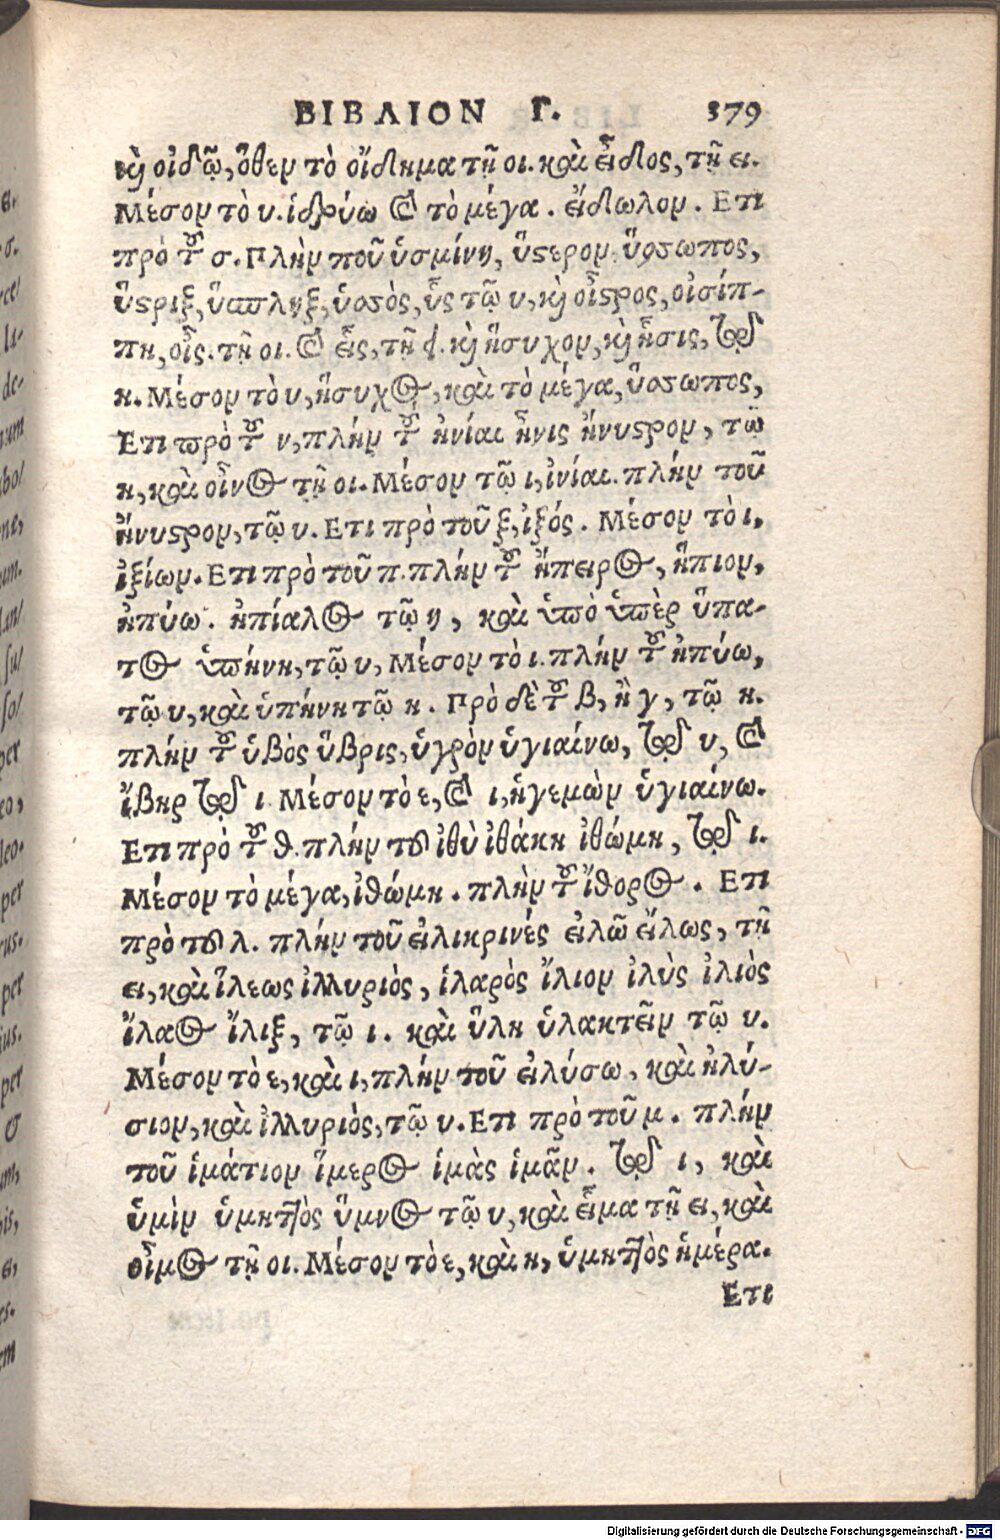 ΒΙΒΛΙΟΝ Γ. 379
καὶ οἰδῶ, ὅθεν τὸ οἴδημα τῇ οι. καὶ εἶδος, τῇ ει.
Μέσον τὸ υ. ἱδρύω καὶ τὸ μέγα. εἴδωλον. Ετι
πρὸ τοῦ σ. Πλὴν ποῦ ὑσμίνη, ὕστερον, ὕσσωπος,
ὕστριξ, ὕσπληξ, ὑσσὸς, ὗς τῷ υ, καὶ οἶστρος, οἰσίπ-
πη, οἷς. τῇ οι. καὶ εἷς, τῇ ει. καὶ ἥσυχον, καὶ ἧσις, τῷ
η. Μέσον τὸ υ, ἥσυχος, καὶ τὸ μέγα, ὕσσωπος,
Ετι πρὸ τοῦ ν, πλὴν τοῦ ἡνίαι ἦνις ἤνυστρον, τῷ
η, καὶ οἶνος τῇ οι. Μέσον τῷ ι, ἰνίαι. πλὴν τοῦ
ἤνυστρον, τῷ υ. Ετι πρὸ τοῦ ξ, ἰξός. Μέσον τὸ ι,
ἰξίων. Ετι πρὸ τοῦ π. πλὴν τοῦ ἤπειρος, ἤπιον,
ἠπύω. ἠπίαλος τῷ η, καὶ ὑπὸ ὑπὲρ ὕπα-
τος ὑπήνη, τῷ υ, Μέσον τὸ ι. πλὴν τοῦ ἠπύω,
τῷ υ, καὶ ὑπήνη τῷ η. Πρὸ δὲ τοῦ β, ἢ γ, τῷ η.
πλὴν τοῦ ὑβὸς ὕβρις, ὑγρὸν ὑγιαίνω, τῷ υ, καὶ
ἴβηρ τῷ ι Μέσον τὸ ε, καὶ ι, ἡγεμὼν ὑγιαίνω.
Ετι πρὸ τοῦ θ. πλὴν τοῦ ἰθὺ ἰθάκη ἰθώμη, τῷ ι.
Μέσον τὸ μέγα, ἰθώμη. πλὴν τοῦ ἴθορος. Ετι
πρὸ τοῦ λ. πλὴν τοῦ εἰλικρινές εἰλῶ εἵλως, τῇ
ει, καὶ ἵλεως ἰλλυριὸς, ἱλαρὸς ἴλιον ἰλὺς ἰλιὸς
ἴλαος ἴλιξ, τῷ ι. καὶ ὕλη ὑλακτεῖν τῷ υ.
Μέσον τὸ ε, καὶ ι, πλὴν τοῦ εἰλύσω, καὶ ἠλύ-
σιον, καὶ ἰλλυριὸς, τῷ υ. Ετι πρὸ τοῦ μ. πλὴν
τοῦ ἱμάτιον ἵμερος ἱμὰς ἱμᾶν. τῷ ι, καὶ
ὑμὶν ὑμηττὸς ὕμνος τῷ υ, καὶ εἷμα τῇ ει, καὶ
οἶμος τῇ οι. Μέσον τὸ ε, καὶ η, ὑμηττὸς ἡμέρα.
Ετι